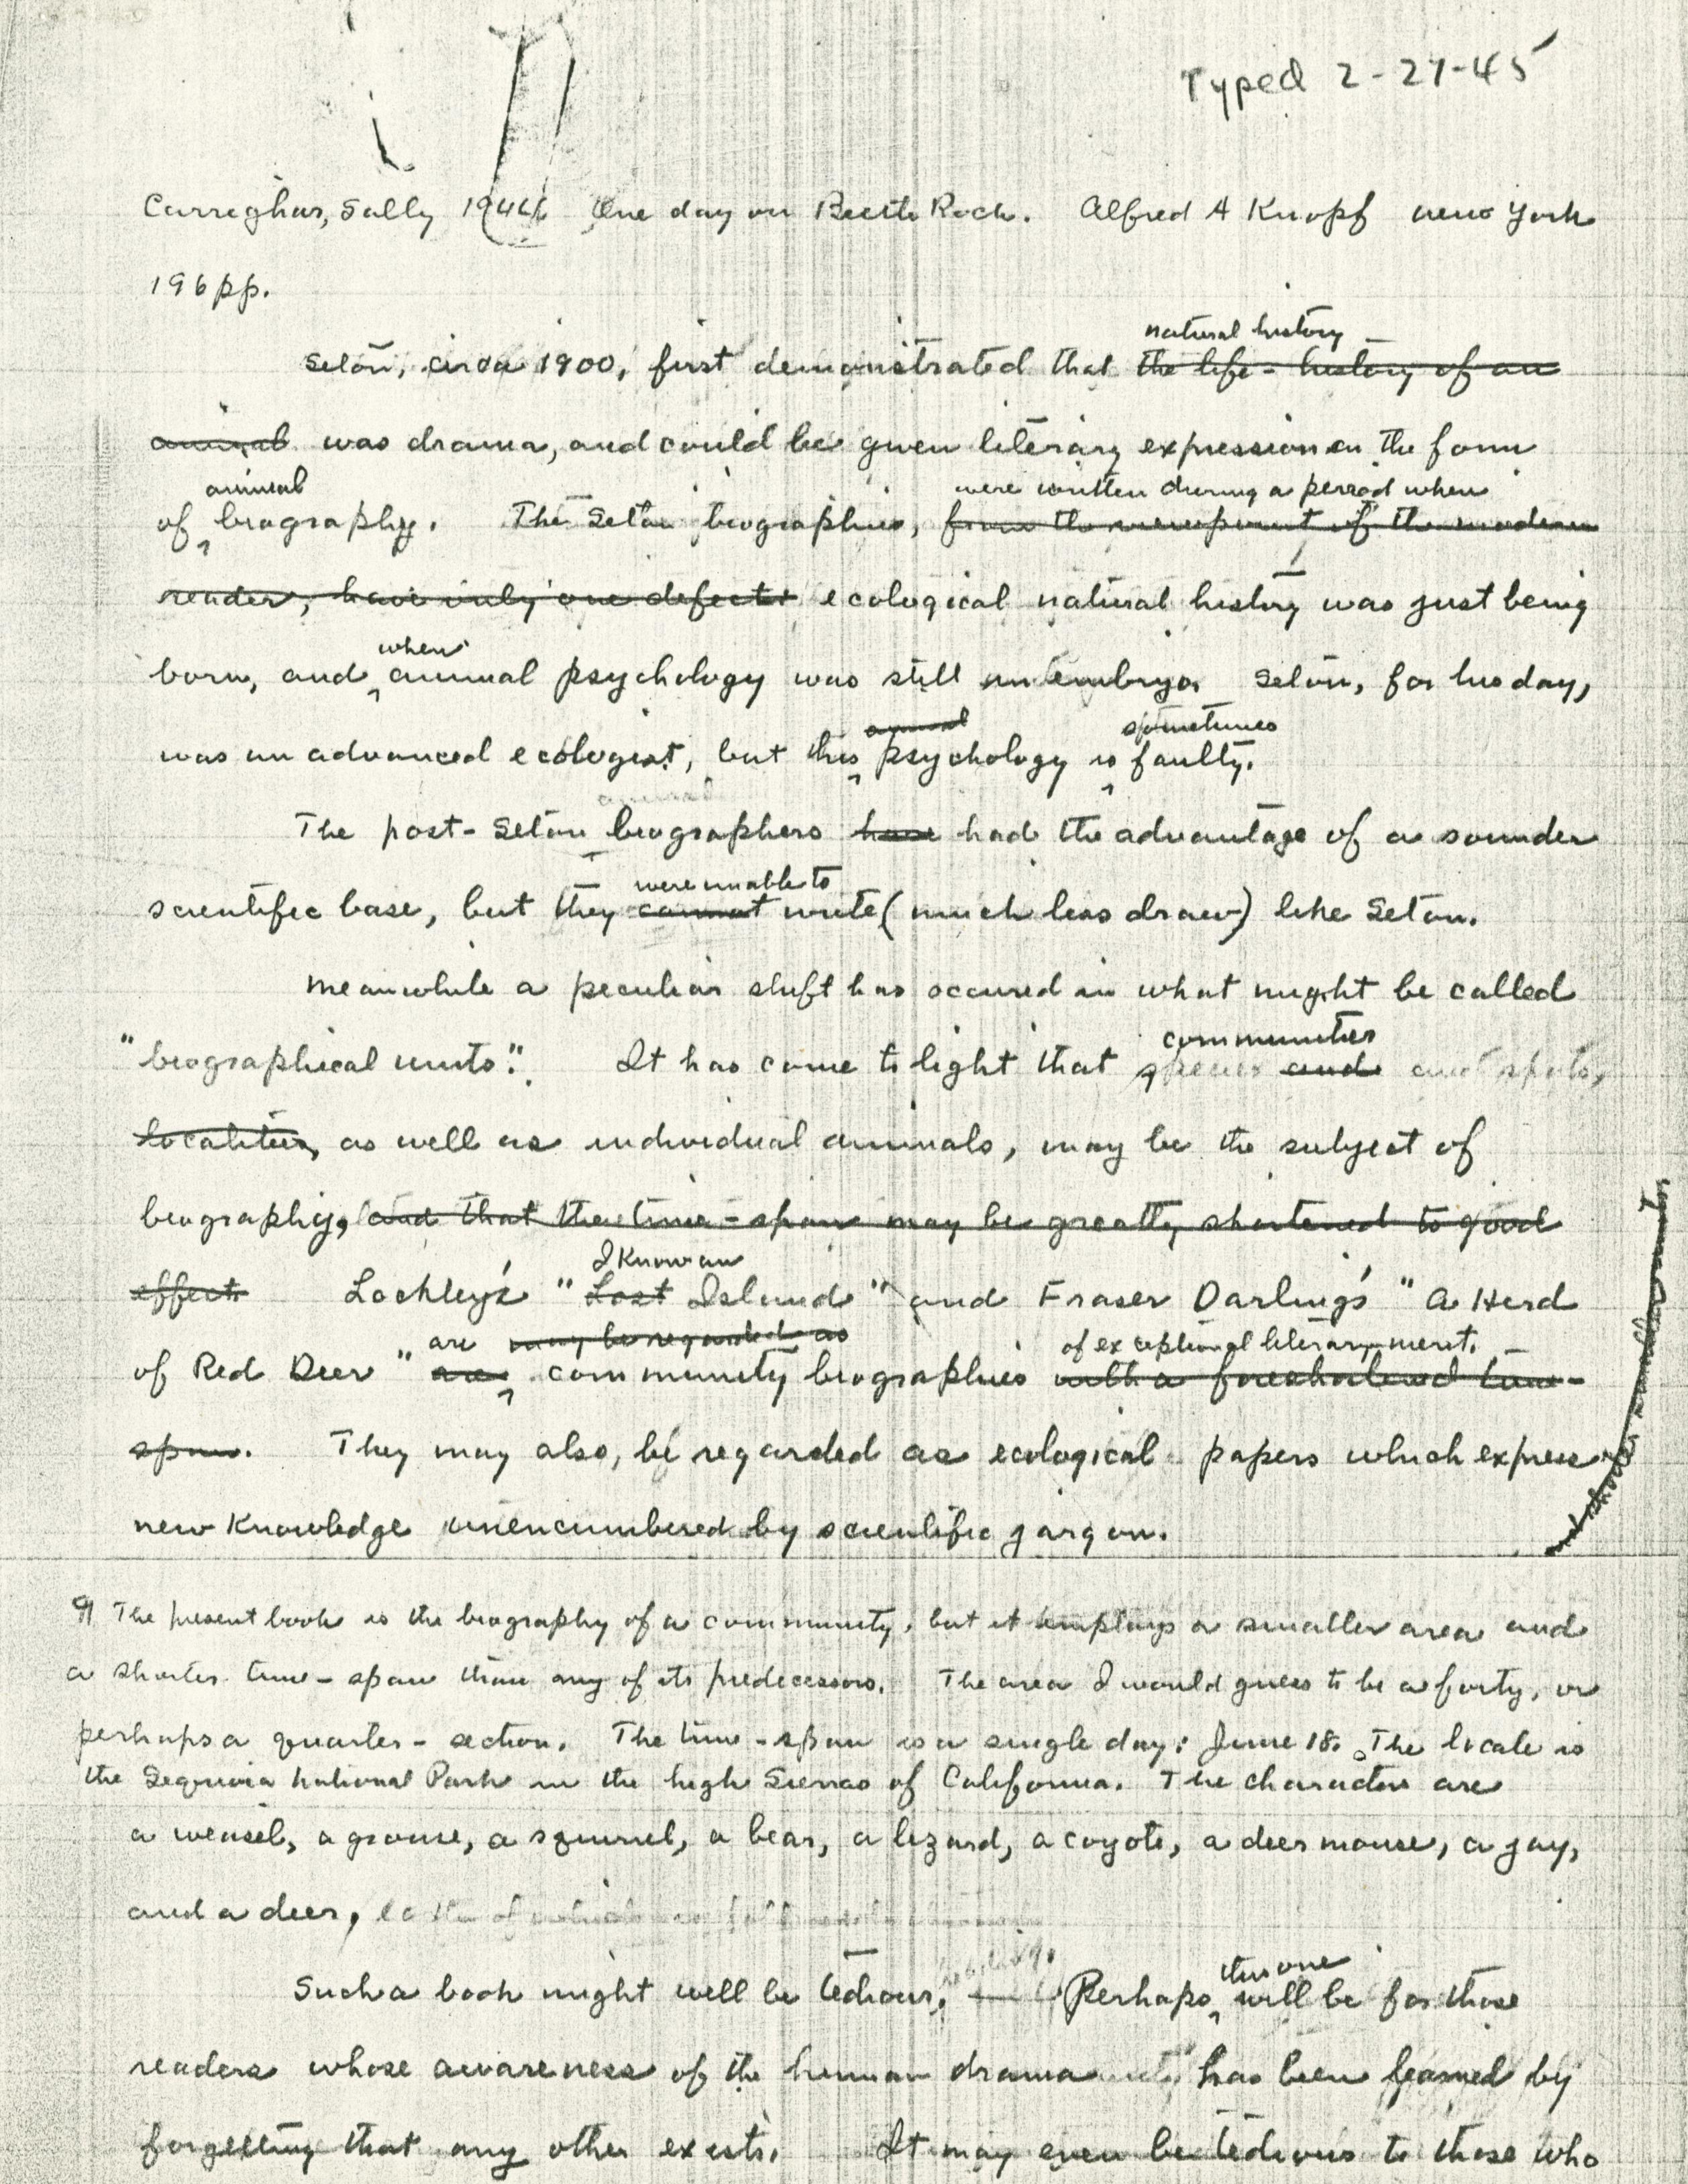 Typed 2-27-45
Carrighar, Sally 1944 One day on Beetle Rock. Alfred A Knopf new York
196 pp.
natural history
Seton, circa 1900, first demonstrated that the life-history of an
animal was drama, and could be given literary expression in the form
animal were written during a period when
of biography. The Seton biographies, from the viewpoint of the modern
reader, have only one defect: ecological natural history was just being
when
born, and animal psychology was still in embryo. Seton, for his day,
animal sometimes
was an advanced ecologist, but his psychology is faulty.
animal
The post-Seton biographers have had the advantage of a sounder
were unable to
scientific base, but they cannot write (much less draw) like Seton.
Meanwhile a peculiar shift has occured in what might be called
communities
"biographical units". It has come to light that species and and spots,
localities, as well as individual animals, may be the subject of
biography, and that the time-span may be greatly shortened to good
I Know an
effect Lockley's "Lost Island" and Fraser Darling's "A Herd
are may be regarded as of exceptional literary merit.
of Red Deer" are community biographies with a foreshortened time-
span. They may also, be regarded as ecological papers which express
new Knowledge unencumbered by scientific jargon.
¶ The present book is the biography of a community, but it employs a smaller area and
a shorter time-span than any of its predecessors. The area I would guess to be a forty, or
perhaps a quarter-section. The time-span is a single day: June 18. The locale is
the Sequoia National Park in the high Sierras of California. The characters are
a weasel, a grouse, a squirrel, a bear, a lizard, a coyote, a deer mouse, a jay,
and a deer,
this one
Such a book might well be tedious. Perhaps will be for those
readers whose awareness of the human drama has been learned by
forgetting that any other exists. It may even be tedious to those who